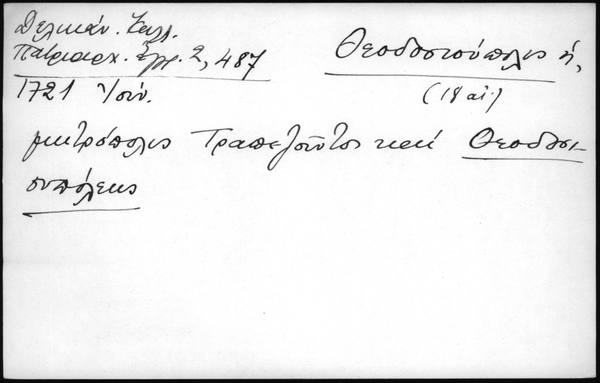 Δελικάν. Καλλ.
Πατριαρχ. Ἔγγρ. 2, 487
1721 Ἰούν.
Θεοδοσιούπολις ἡ,
(18 αἰ.)
μητρόπολις Τραπεζοῦντος καὶ Θεοδοσι-
ουπόλεως